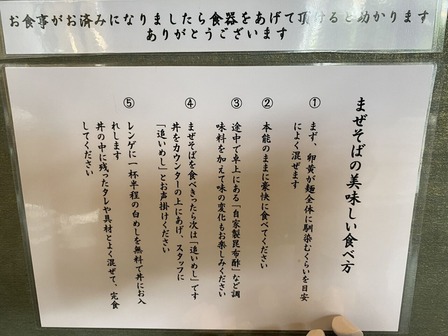 お食事がお済みになりましたら食器をあげて頂けると助かります
ありがとうございます
まぜそばの美味しい食べ方
① まず、卵黄が麺全体に馴染むくらいを目安
によく混ぜます
② 本能のままに豪快に食べてください
③ 途中で卓上にある「自家製昆布酢」など調
味料を加えて味の変化もお楽しみください
④ まぜそばを食べきったら次は「追いめし」です
丼をカウンターの上にあげ、スタッフに
「追いめし」とお声掛けください
⑤ レンゲに一杯半程の白めしを無料で丼にお入
れします
丼の中に残ったタレや具材とよく混ぜて、完食
してください